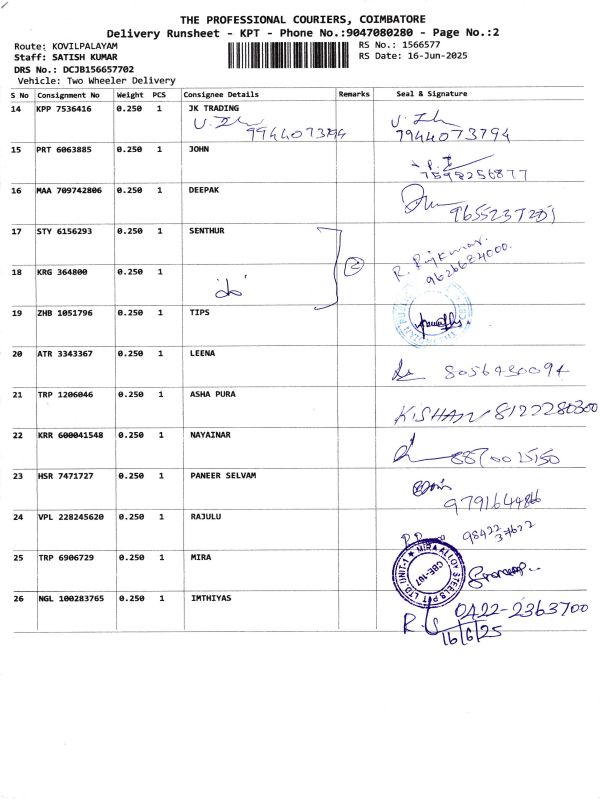 THE PROFESSIONAL COURIERS, COIMBATORE
Delivery Runsheet - KPT - Phone No.:9047080280 - Page No.:2
Route: KOVILPALAYAM
Staff: SATISH KUMAR
DRS No.: DCJB156657702
Vehicle: Two Wheeler Delivery
RS No.: 1566577
RS Date: 16-Jun-2025
S No Consignment No Weight PCS Consignee Details Remarks Seal & Signature
14 KPP 7536416 0.250 1 JK TRADING
9944073794 7944073794
15 PRT 6063885 0.250 1 JOHN
7598256877
16 MAA 709742806 0.250 1 DEEPAK
9655237251
17 STY 6156293 0.250 1 SENTHUR
R. Rajkumar.
9626684000.
18 KRG 364800 0.250 1
2
19 ZHB 1051796 0.250 1 TIPS
20 ATR 3343367 0.250 1 LEENA
8056430094
21 TRP 1206046 0.250 1 ASHA PURA
KISHAN 8122280300
22 KRR 600041548 0.250 1 NAYAINAR
8870015150
23 HSR 7471727 0.250 1 PANEER SELVAM
9791644866
24 VPL 228245620 0.250 1 RAJULU
98422
37622
25 TRP 6906729 0.250 1 MIRA
MIRA ALLOY STEELS P LTD. UNIT-1
CBE-107
26 NGL 100283765 0.250 1 IMTHIYAS
0422-2363700
16/6/25